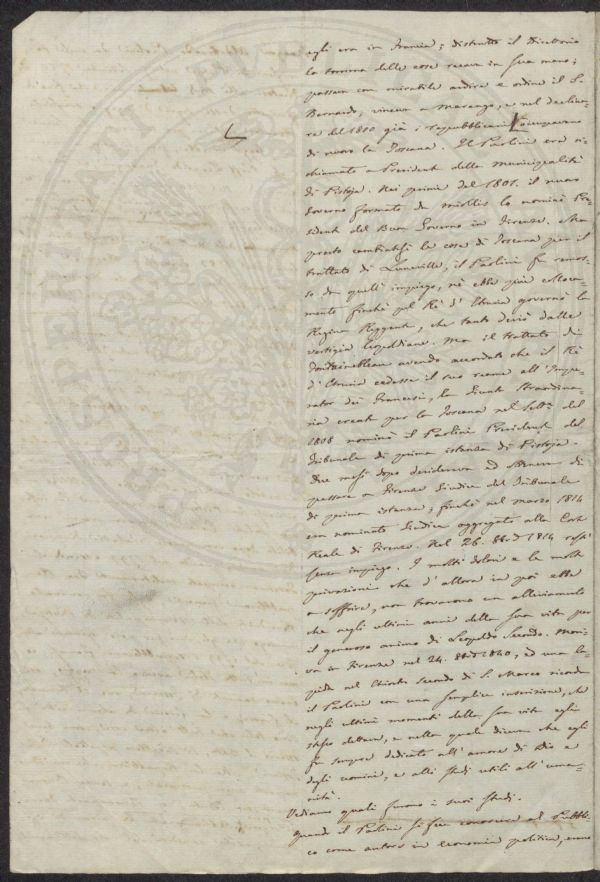 egli era in Francia; distrutto il Direttorio
la somma delle cose recava in sua mano;
passava con mirabile ardire e ordine il S.
Bernardo, vinceva a Marengo, e nel declina-
re del 1800 già i repubblicani occupavano
di nuovo la Toscana. Il Paolini era ri-
chiamato a Presidente della municipalità
di Pistoja. Nei primi del 1801. il nuovo
Governo formato da Miollis lo nominò Pre-
sidente del Buon Governo in Firenze. Ma
presto cambiatesi le cose di Toscana per il
trattato di Luneville, il Paolini fu remos-
so da quell'impiego, né ebbe più colloca-
mento finché pel Re d'Etruria governò la
Regina Reggente, che tanto deviò dalle
vestigia leopoldiane. Ma il trattato di
Fontainebleau avendo accordato che il Re
d'Etruria cedesse il suo reame all'Impe-
rator dei Francesi, la Giunta straordina-
ria creata per la Toscana nel del
1808 nominò il Paolini Presidente del
Tribunale di prima istanza di Pistoja.
Due mesi dopo desiderava ed otteneva di
passare a Firenze Giudice del Tribunale
di prima istanza; finché nel marzo 1814
era nominato Giudice aggregato alla Corte
Reale di Firenze. Nel 26. 1814 restò
senza impiego. I molti dolori e le molte
privazioni che d'allora in poi ebbe
a soffrire, non trovarono un alleviamento
che negli ultimi anni della sua vita per
il generoso animo di Leopoldo Secondo. Mori-
va in Firenze nel 24. 1840, ed una la-
pida nel Chiostro Secondo di S. Marco ricorda
il Paolini con una semplice inscrizione, che
negli ultimi momenti della sua vita egli
stesso dettava, e nella quale diceva che egli
fu sempre dedicato all'amore di Dio e
degli uomini, e alli studi utili all'uma-
nità.
Vediamo quali furono i suoi studi.
Quando il Paolini si fece conoscere al Pubbli-
co come autore in economia politica, erano